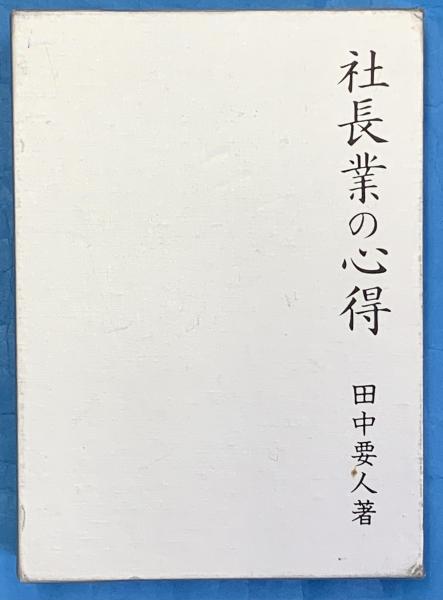 社長業の心得
田中要人著